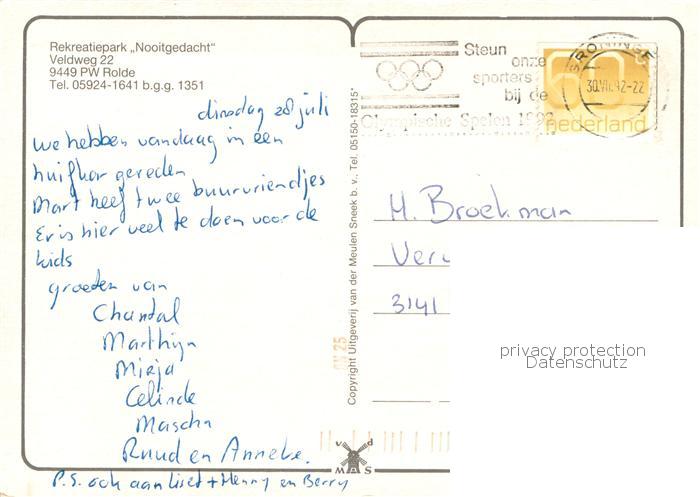 Rekreatiepark „Nooitgedacht"
Veldweg 22
9449 PW Rolde
Tel. 05924-1641 b.g.g. 1351
dinsdag 28 juli
we hebben vandaag in een
huifkar gereden
Mart heeft twee buurvriendjes
Er is hier veel te doen voor de
kids
groeten van
Chantal
Marthijn
Mirja
Celinde
Mascha
Ruud en Anneke.
P.S. ook aan Liset + Henny en Berry
Copyright Uitgeverij van der Meulen Sneek b.v., Tel. 05150-18315*
v d
MAS
Steun
onze
sporters
bij de
Olympische Spelen 1992
GRONINGEN
30.VII.92-22
60
nederland
H. Broekman
Ver
3141
privacy protection
Datenschutz